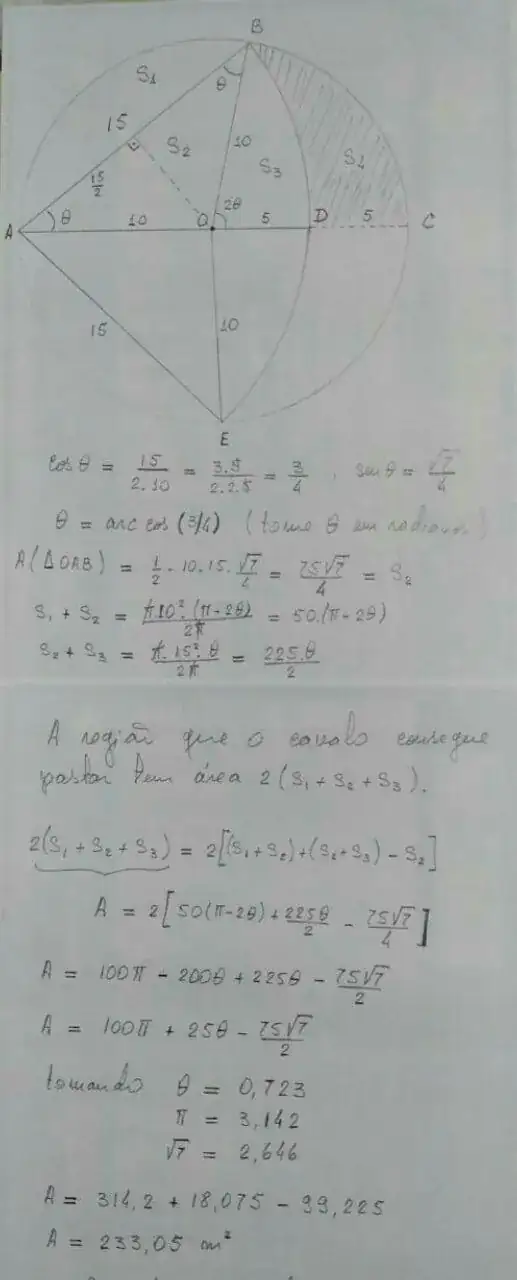 B
S₁
θ
15
S₂
10
S₃
S₄
15/2
A
θ
10
O
2θ
5
D
5
C
15
10
E
cos θ = 15/2.10 = 3.5/2.2.5 = 3/4 , sen θ = √7/4
θ = arc cos (3/4) (tome θ em radianos)
A(ΔOAB) = 1/2 . 10.15. √7/4 = 75√7/4 = S₂
S₁ + S₂ = π.10².(π-2θ)/2π = 50.(π-2θ)
S₂ + S₃ = π.15².θ/2π = 225.θ/2
A região que o cavalo consegue
pastar tem área 2(S₁ + S₂ + S₃).
2(S₁ + S₂ + S₃) = 2[(S₁+S₂)+(S₂+S₃) - S₂]
A = 2[50(π-2θ) + 225θ/2 - 75√7/4]
A = 100π - 200θ + 225θ - 75√7/2
A = 100π + 25θ - 75√7/2
tomando θ = 0,723
π = 3,142
√7 = 2,646
A = 314,2 + 18,075 - 99,225
A = 233,05 m²